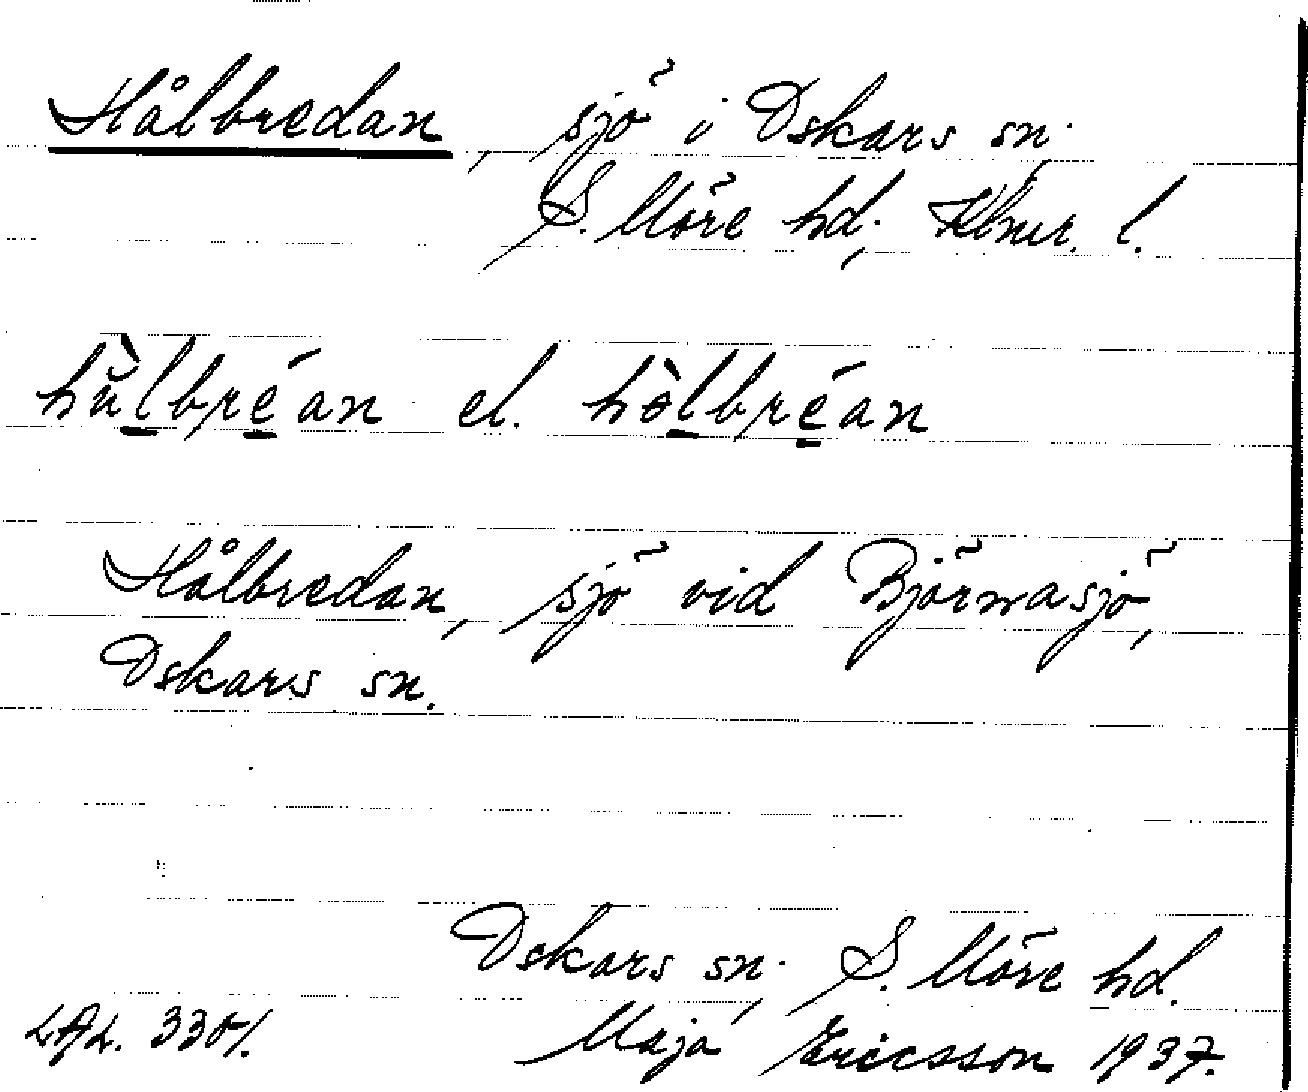 Hålbredan, sjö i Oskars sn.
S. Möre hd; Klmr. l.
hùlbréan el. hòlbréan
Hålbredan, sjö vid Björnasjö,
Oskars sn.
Oskars sn. S. Möre hd.
Maja Ericsson 1937.
LAL.